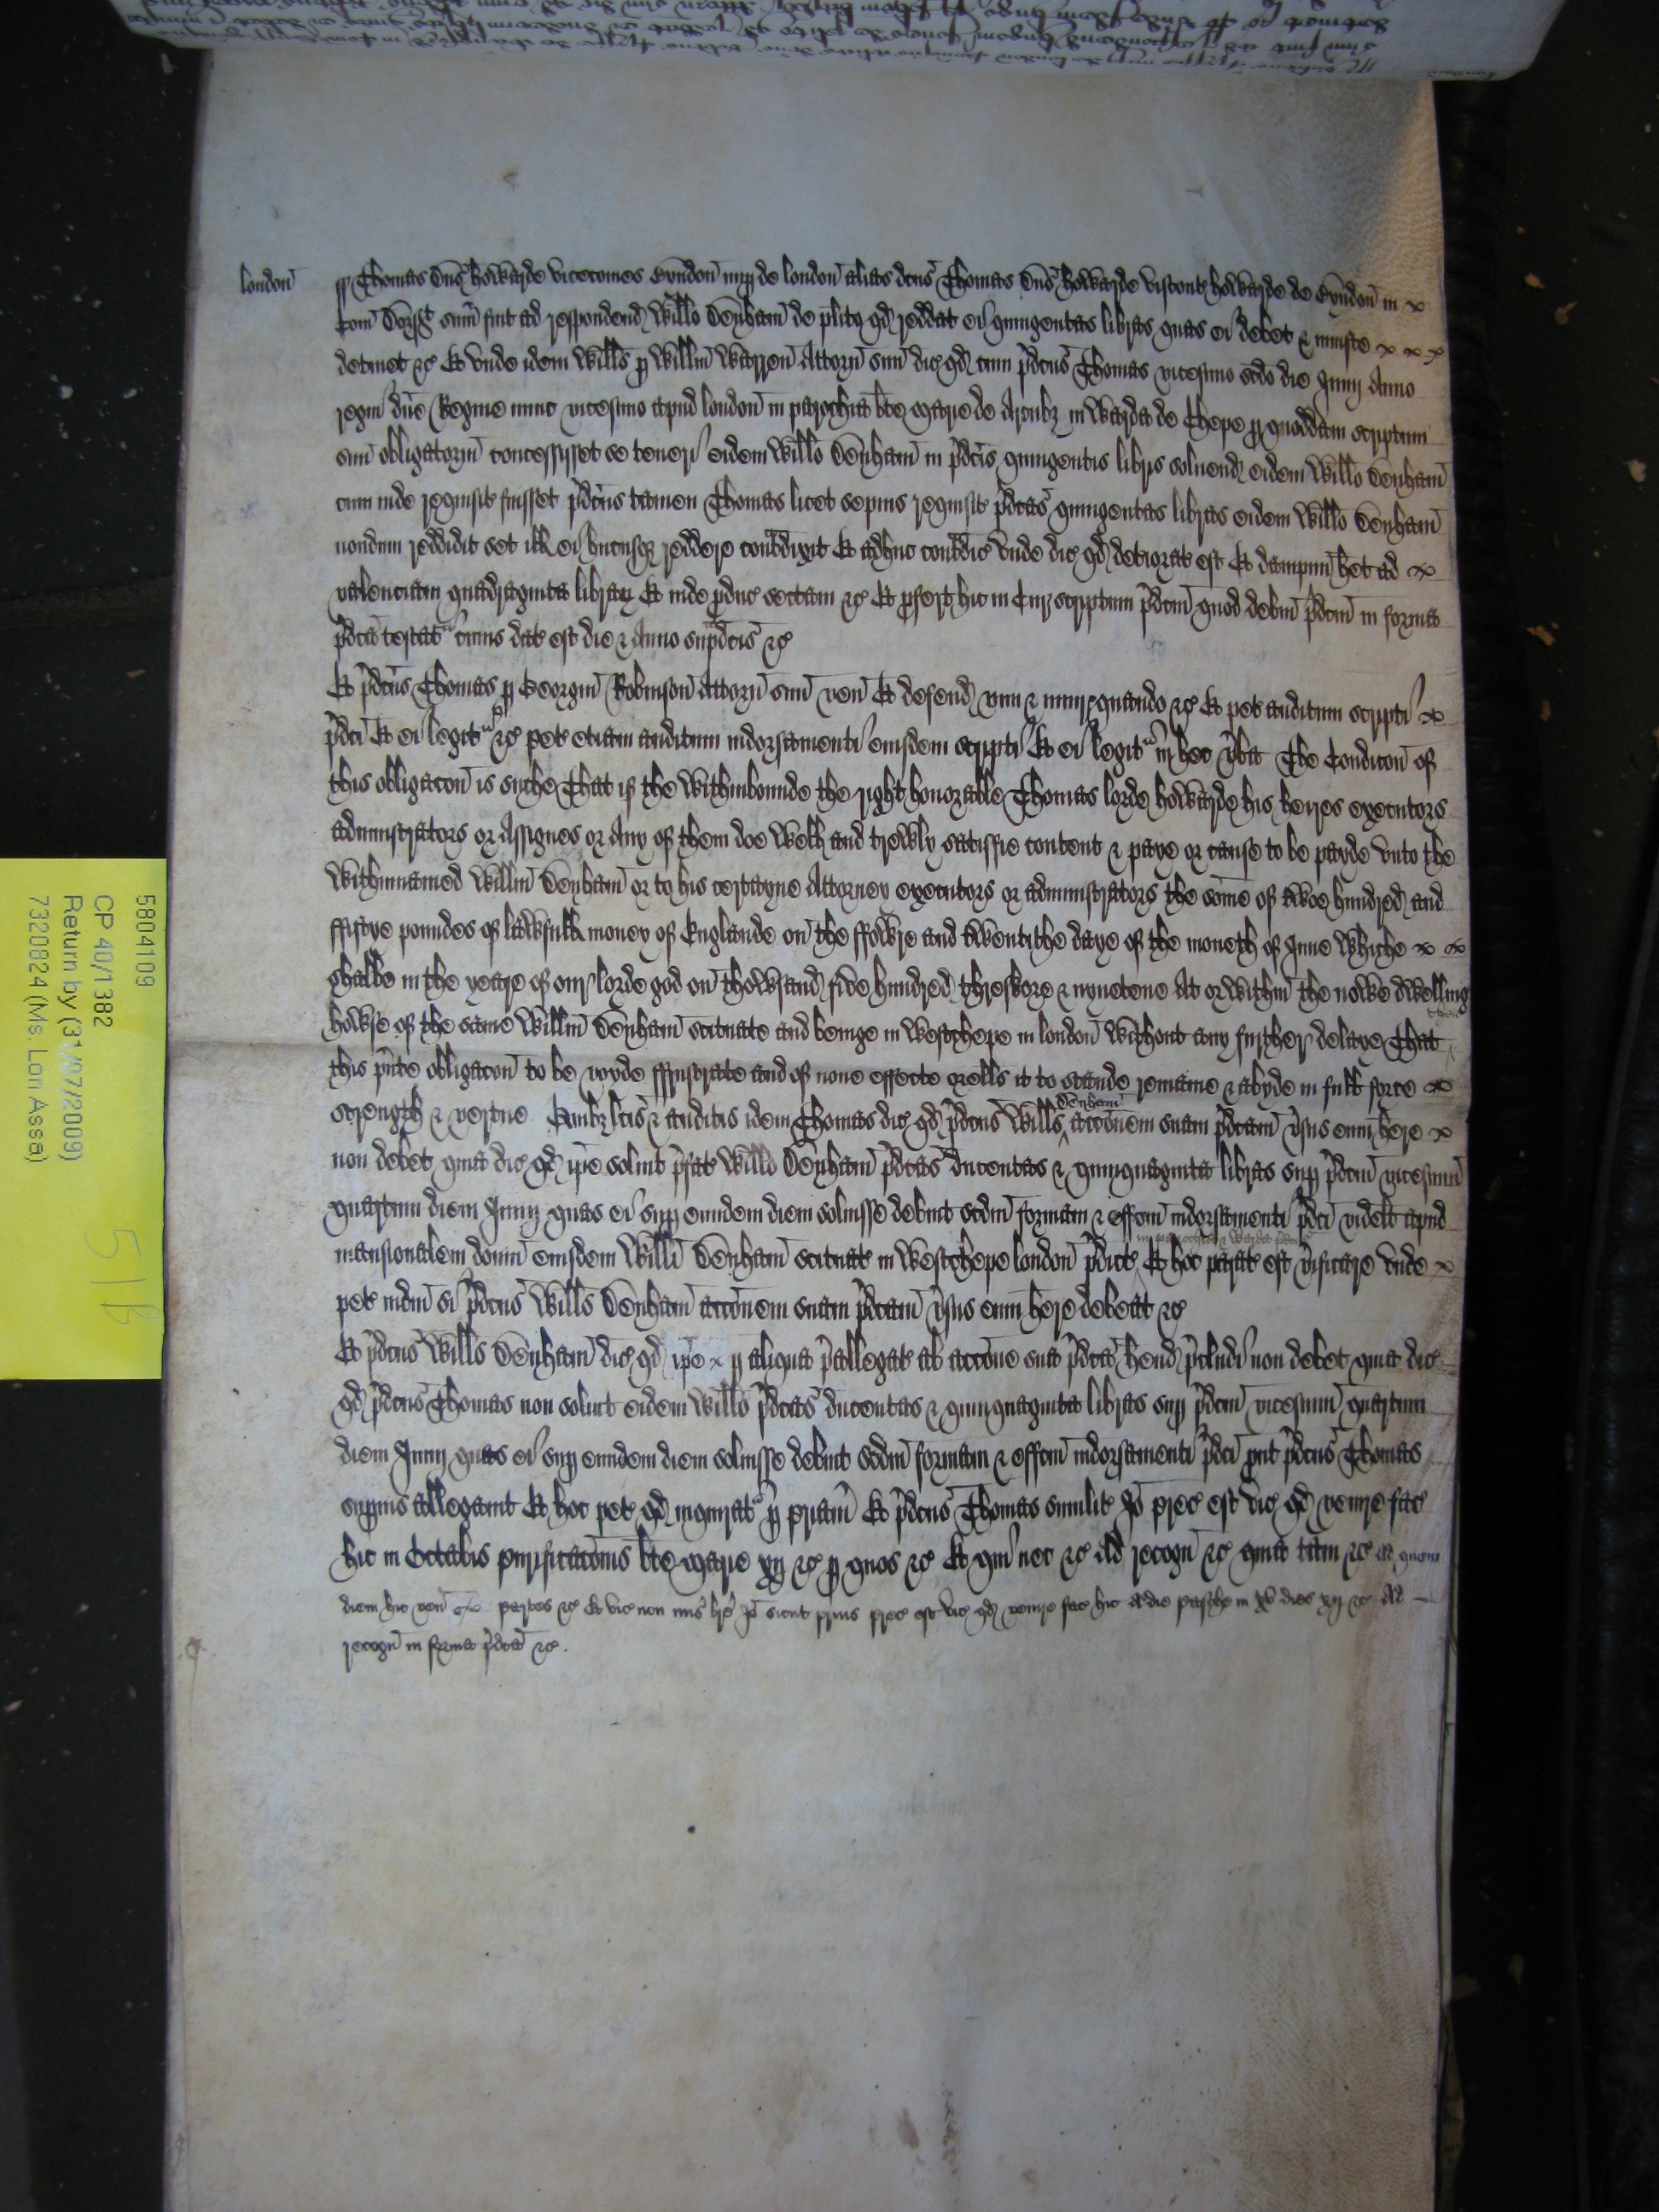 london̄
ss Thomas Dn̄s howarde vicecomes Byndon̄ nup de london̄ alias dc̄us Thomas Dn̄s howarde viscount howarde de Byndon̄ in x
Com̄ Dors̄t sum̄ fuit ad respondend Willo Denham̄ de plito qd reddat ei quingentas libras quas ei debet & iniuste x x x
detinet &c Et vnde idem Willūs p Willm̄ Warren̄ Attorn̄ suū dic qd cum p̄dcūs Thomas vicesimo scdo die Junij Anno
regni dn̄e Regine nunc vicesimo apud london̄ in parochia bte Marie de Arcubȝ in Warda de Chepe p quoddam scriptum
suū obligatoriū concessisset se teneri eidem Willo Denham̄ in p̄dcis quingentis libris soluend eidem Willo Denham̄
cum inde requisit fuisset p̄dcūs tamen Thomas licet sepius requisit p̄dcas quingentas libras eidem Willo Denham̄
nondum reddidit set ill ei hucusqȝ reddere contradixit Et adhuc contradic vnde dic qd deteriorat est Et dampnū het ad x
valenciam quadraginta librar Et inde pduc sectam &c Et pfert hic in Cur scriptum p̄dcm̄ quod debm̄ p̄dcm̄ in forma
p̄dca testat cuius dat est die & Anno sup̄dcis &c
Et p̄dcūs Thomas p Georgiū Robinson Attorn̄ suū ven̄ Et defend vim & iniur quando &c Et pet auditum scripti x
p̄dci Et ei legit &c pet etiam auditum indorsamenti eiusdem scripti Et ei legit in hec v̄ba The Condicōn of
this obligacōn is suche That if the Withinbounde the right honorable Thomas lorde howarde his heires executors
administrators or Assignes or Any of them doe Well and trewly satisfie content & paye or cause to be payde vnto the
Withinnamed Willm̄ Denham̄ or to his certayne Attorney executors or administrators the som̄e of twoe hundred and
ffiftye poundes of lawfull money of Englande on the ffowre and twentithe daye of the moneth of June Whiche x x
shalbe in the yeare of our lorde god on thowsand five hundred threskore & nynetene At or within the nowe dwelling
howse of the same Willm̄ Denham̄ scituate and beinge in Westchepe in london̄ Without any further delaye That
then
this p̄nte obligacōn to be voyde ffrustrate and of none effecte orells it to stande remaine & abyde in full force x
strength & vertue Quibȝ lc̄is & auditis idem Thomas dic qd p̄dcūs Wills Denham̄ acc̄onem suam p̄dcam v̄sus eum h̄ere x
non debet quia dic qd ip̄e soluit p̄fat Willo Denham̄ p̄dcas ducentas & quinquaginta libras sup p̄dcm̄ vicesimū
quartum diem Junij quas ei sup eundem diem soluisse debuit scdm̄ formam & effcm̄ indorsamenti p̄dci videlt apud
mansionalem domū eiusdem Willi Denham̄ scituat in Westchepe london̄ p̄dict in parochia & Warda p̄dict Et hoc parat est v̄ificare vnde x
pet iudm̄ si p̄dcūs Wills Denham̄ acc̄onem suam p̄dcam v̄sus eum h̄ere debeat &c
Et p̄dcūs Wills Denham̄ dic qd ip̄e x p aliqua p̄allegat ab acc̄one sua p̄dca hend p̄cludi non debet quia dic
qd p̄dcūs Thomas non soluit eidem Willo p̄dcas ducentas & quinquaginta libras sup p̄dcm̄ vicesimū quartum
diem Junij quas ei sup eundem diem soluisse debuit scdm̄ formam & effcm̄ indorsamenti p̄dci put p̄dcūs Thomas
supius allegauit Et hoc pet qd inquirat p priam̄ Et p̄dcūs Thomas similit Jō prec est vic qd venire fac
hic in Octabis purificac̄onis bte Marie xij &c p quos &c Et qui nec &c Ad recogn̄ &c quia tam &c Ad quem
diem hic ven̄ x partes &c Et vic non mis br̄e Jō sicut prius prec est vic qd venire fac hic A die pasche in xv dies xij &c Ad
recogn̄ in forma p̄dca &c.
5804109
CP 40/1382
Return by (31/07/2009)
7320824 (Ms. Lori Assa)
51B